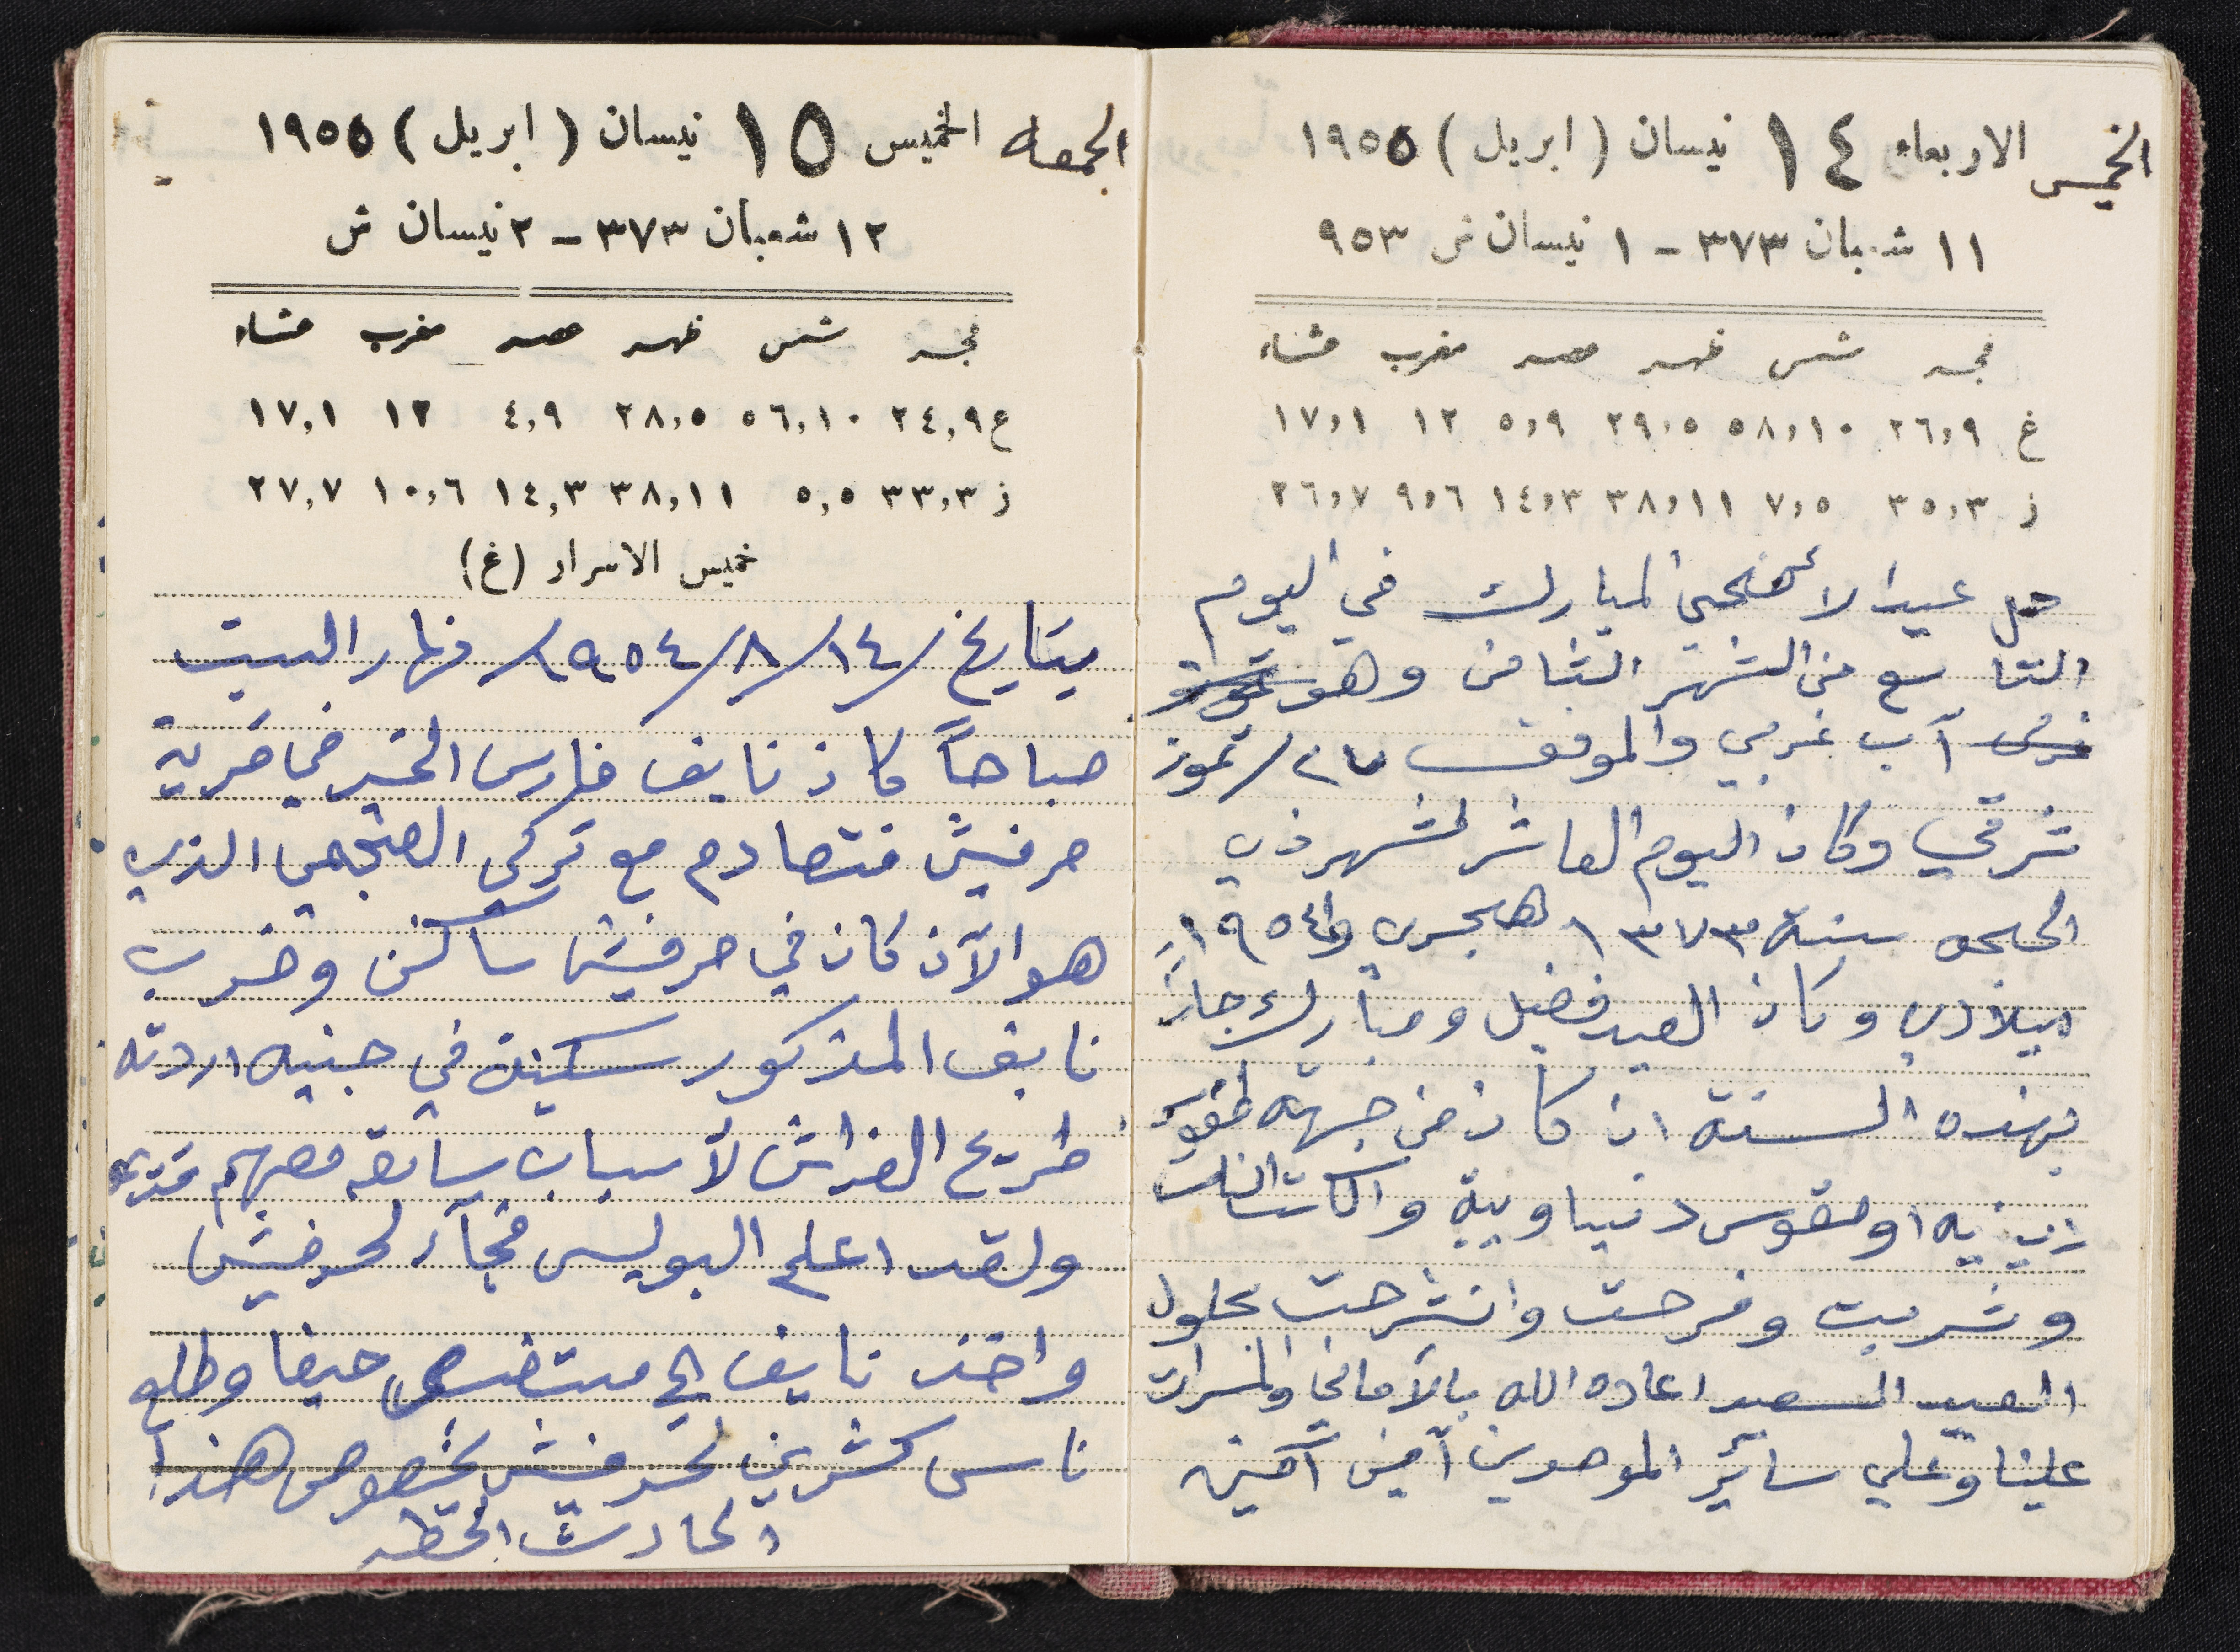 الخميس الاربعاء ١٤ نيسان (ابريل) ١٩٥٥
١١ شعبان ٣٧٣ - ١ نيسان ش ٩٥٣
فجر شمس ظهر عصر مغرب عشاء
غ ٢٦,٩ ٥٨,١٠ ٢٩,٥ ٥,٩ ١٢ ١٧,١
ز ٣٥,٣ ٧,٥ ٣٨,١١ ١٤,٣ ٩,٦ ٢٦,٧
حل عيد الأضحى المبارك في اليوم
التاسع من الشهر الثامن وهو
آب غربي والموفق ٢٧/تموز
شرقي وكان اليوم العاشر لشهر ذي
الحجه سنة ١٣٧٣ هجري و١٩٥٤
ميلادي وكان العيد فضيل ومبارك جداً
بهذه السنة ان كان من جهة طقوس
دينيه او طقوس دنياويية والكائنات
وشربت وفرحت وانشرحت بحلول
العيد السعيد اعاده الله بالأماني والمسرات
علينا وعلى سائر الموحدين آمين آمين
الجمعه الخميس ١٥ نيسان (ابريل) ١٩٥٥
١٢ شعبان ٣٧٣ - ٢ نيسان ش
فجر شمس ظهر عصر مغرب عشاء
ع ٢٤,٩ ٥٦,١٠ ٢٨,٥ ٤,٩ ١٢ ١٧,١
ز ٣٣,٣ ٥,٥ ٣٨,١١ ١٤,٣ ١٠,٦ ٢٧,٧
خميس الاسرار (غ)
بتايخ /١٤/٨/١٩٥٤/ نهار السبت
صباحاً كان نايف فارس الخير في قرية
حرفيش فتصادم مع تركي الذي
هو الآن كان في حرفيش ساكن وضرب
نايف المذكور سكينة في جنبه اردته
طريح الفراش لأسباب سابقه معهم قديمه
ولقد اعلم البوليس فجآء لحرفيش
واخذ نايف الى حيفا وطلع
ناس كثيرين لحرفيش بخصوص هذا
الحادث الخطر